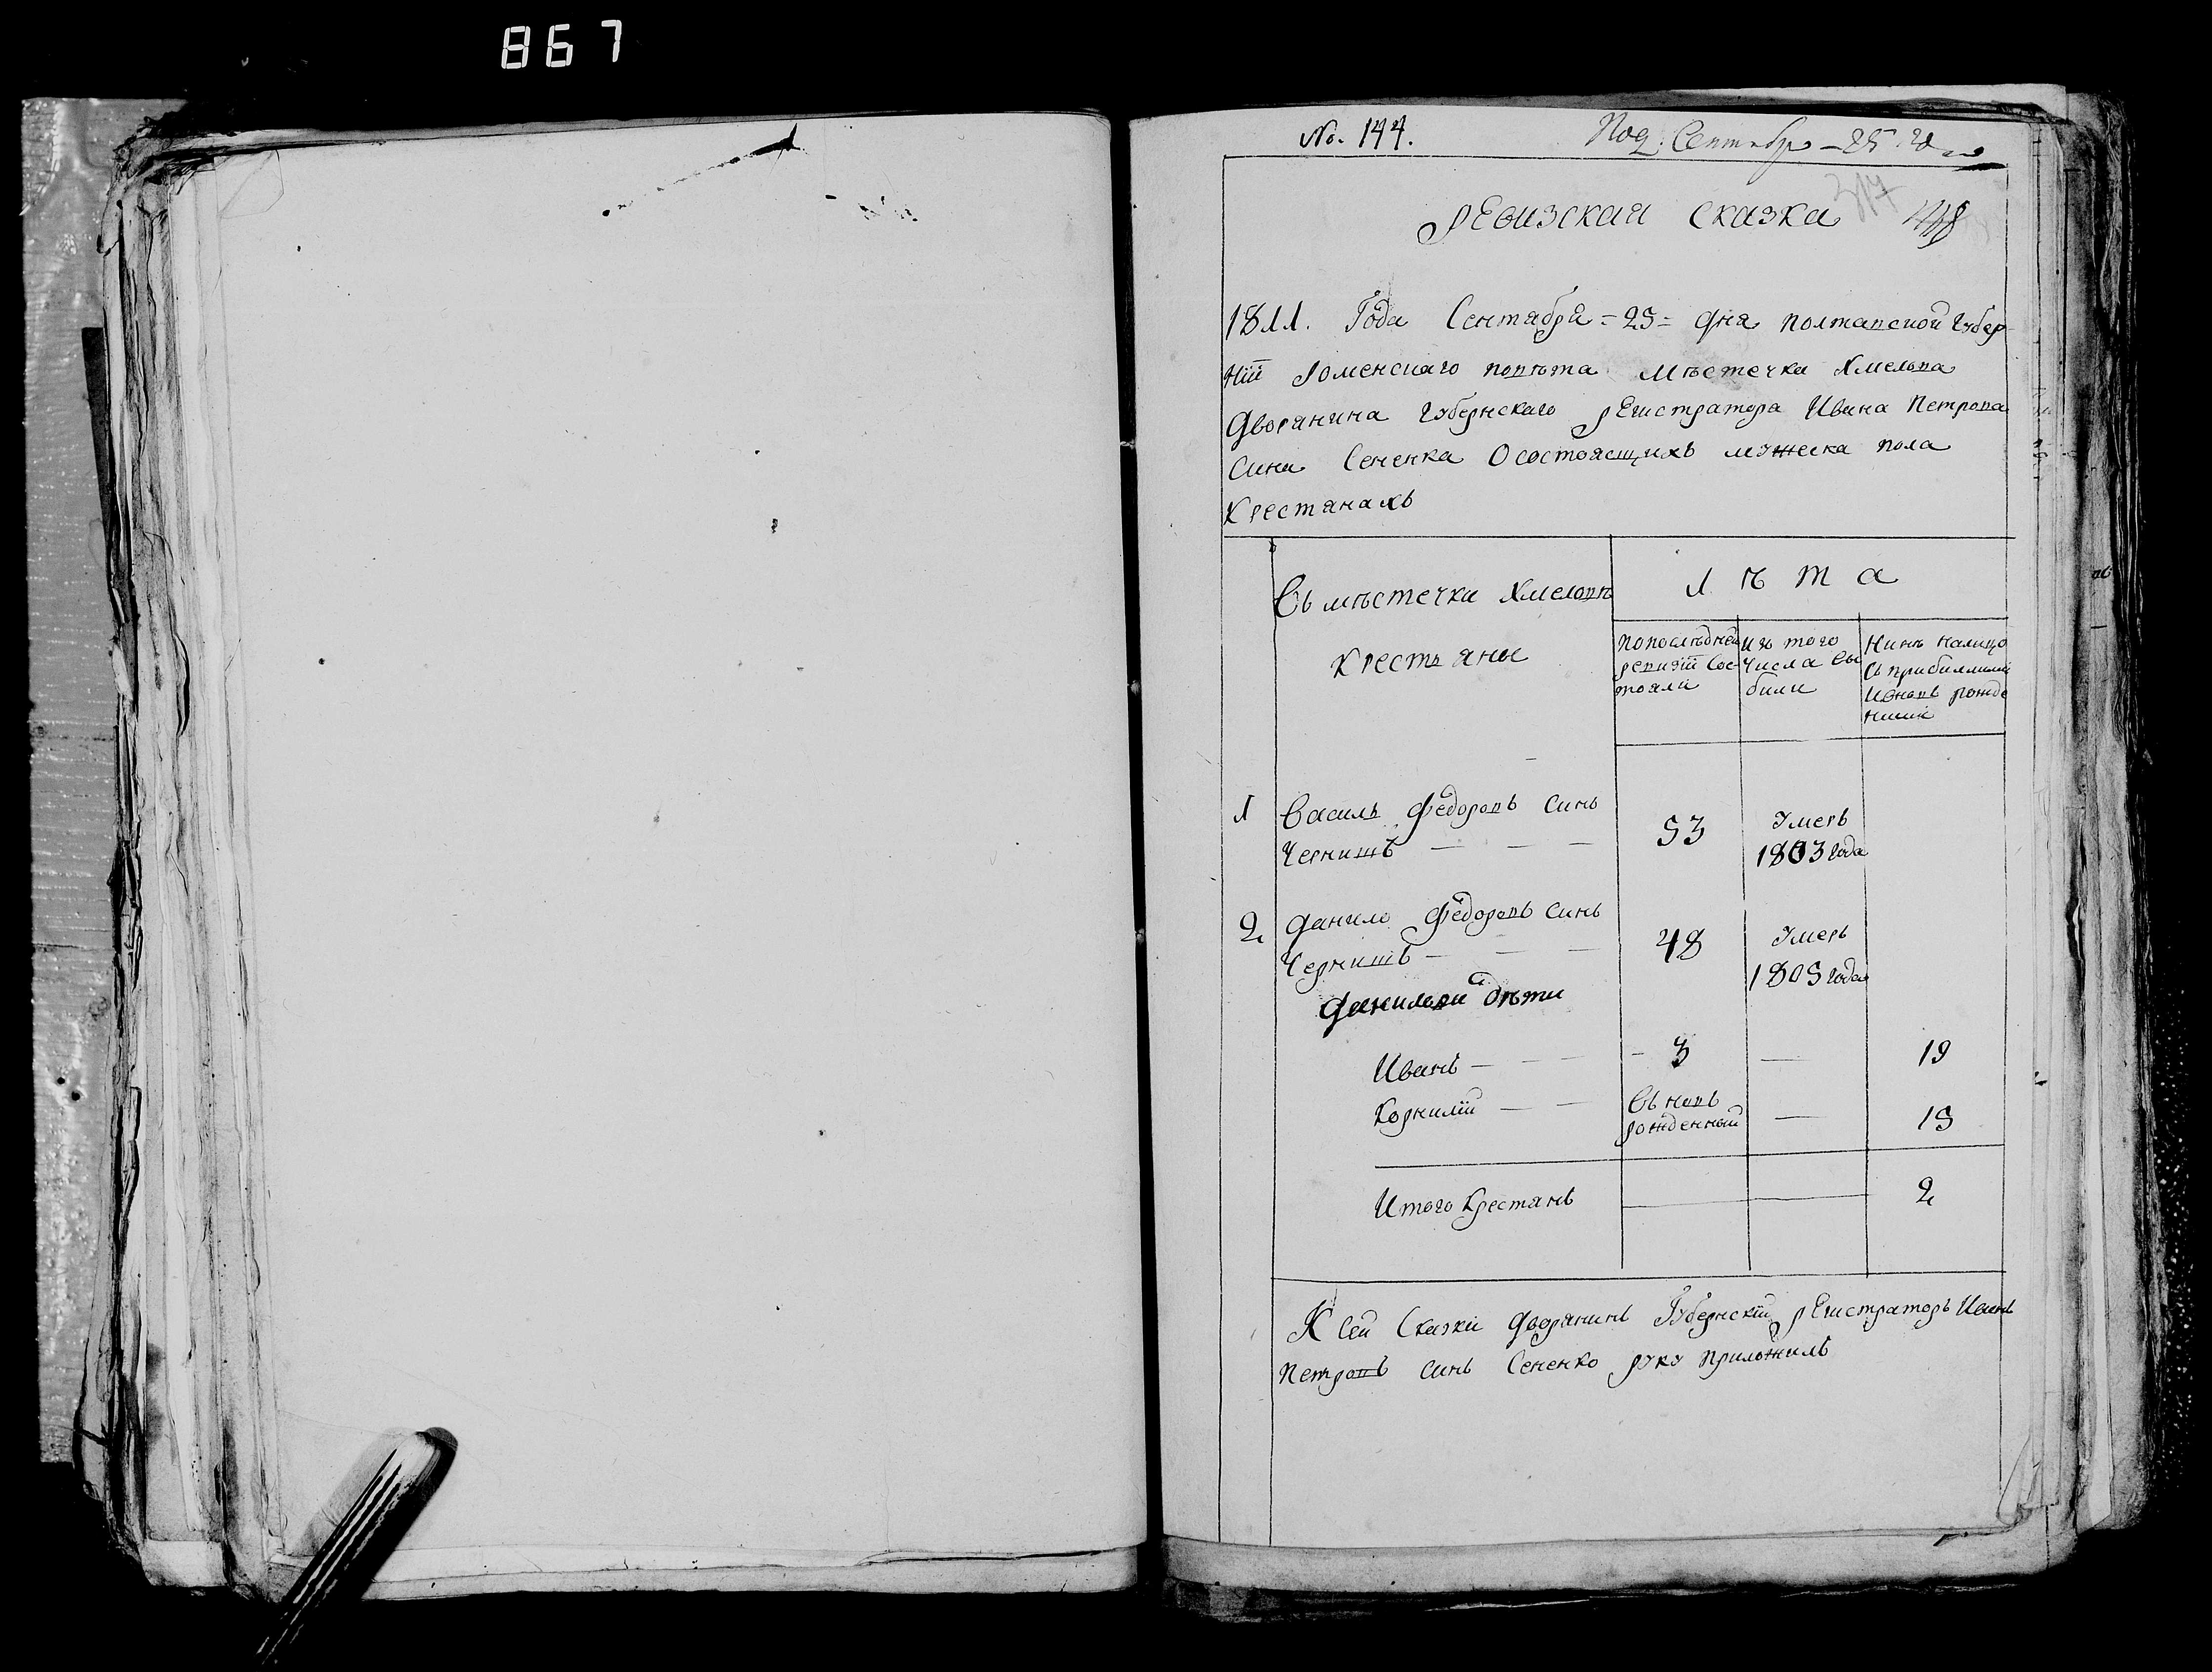 867
No. 144.
Под. Сентября - 25 го дня
Ревизская сказка
317
1811. Года Сентября = 25 = дня полтавской губер
нїй роменскаго повѣта мѣстечка Хмелова
дворянина губернскаго регистратора Ивана Петрова
сина Сененка О состоясщихъ мужеска пола
крестянахъ
Въ мѣстечки Хмеловѣ
крестьяны
Лѣта
По послѣдней
ревизїй сос-
тояли
Изъ того
числа вы
били
Нинѣ налицо
съ прибилими
И вновъ рожде
ними
1 Василь Федоровъ синъ
Чернишъ — — —
53
Умеръ
1803 года
2 Данило Федоровъ синъ
Чернишъ — — —
48
Умеръ
1805 года
Данильви дѣти
Иванъ — — — — 3 — 19
Корнилїй — —
Вновъ
рожденный
— 15
Итого крестянъ — — 2
К сей Сказки дворянинъ Губернскїй регистраторъ Иванъ
Петровъ синъ Сененко руку приложилъ